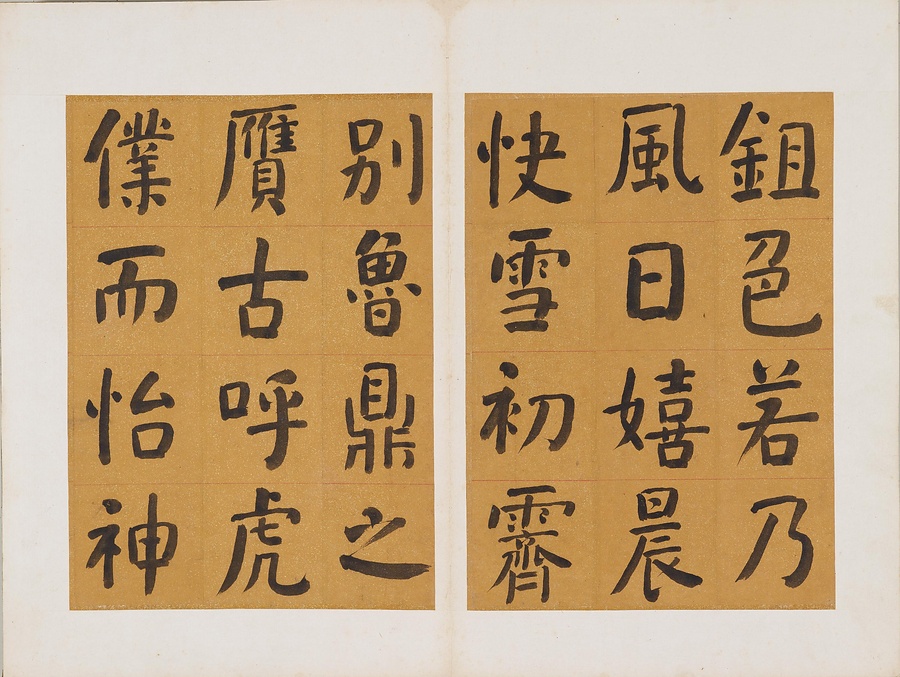 鉏色若乃
風日嬉晨
快雪初霽
别魯鼎之
贗古呼虎
僕而怡神